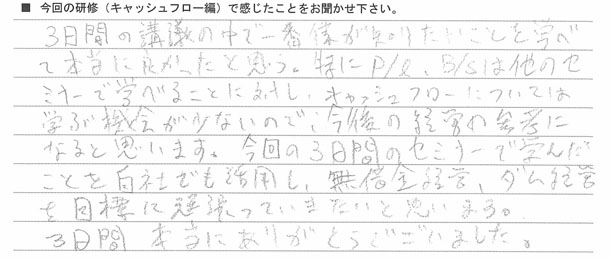 ■ 今回の研修（キャッシュフロー編）で感じたことをお聞かせ下さい。
3日間の講議の中で一番僕が知りたいことを学べ
て本当に良かったと思う。特にP/L、B/Sは他のセ
ミナーで学べることに対し、キャッシュフローについては
学ぶ機会が少ないので、今後の経営の参考に
なると思います。今回の3日間のセミナーで学んだ
ことを自社でも活用し、無借金経営、ダム経営
を目標に頑張っていきたいと思います。
3日間 本当にありがとうございました。